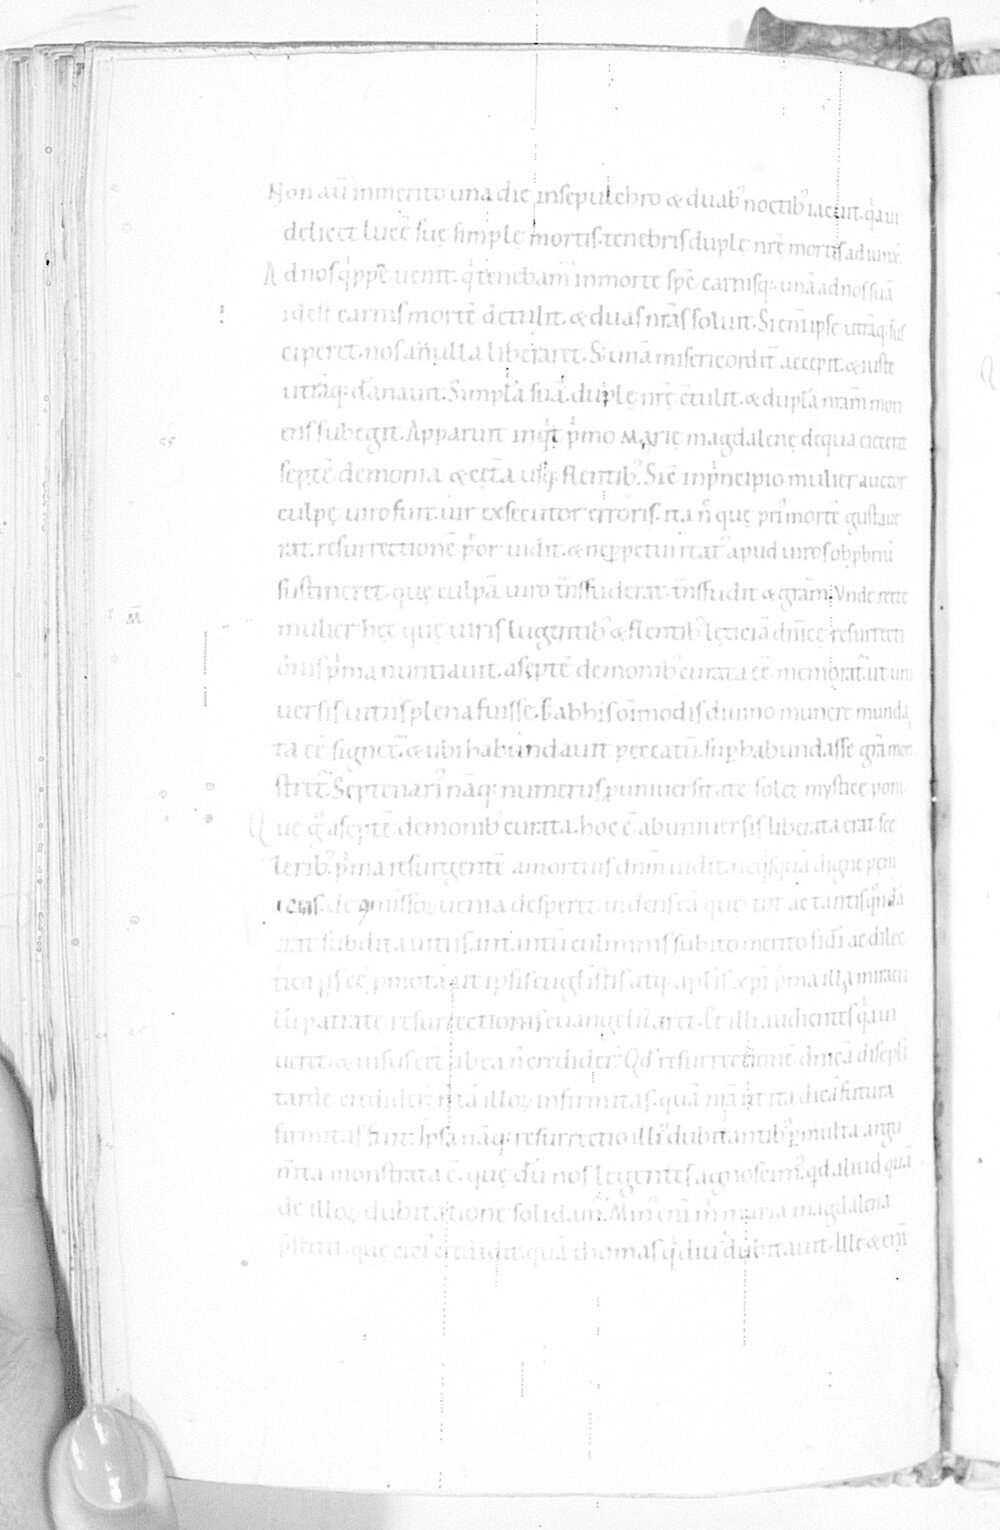 Non aū inmerito una die insepulchro & duab; noctib; iacuit. q̇a ui
delicet lucē suę simplę mortis. tenebris duplę nrē mortis adiunx̄.
Ad nos q̇ppe uenit. q̇ tenebam̄ in morte spc̄ carnisq;. unā ad nos suā
id est carnis mortē detulit. & duas nrās soluit. Si eni ipse utrāq; sus
ciperet. nos a nulla liberaret. S; unā misericordit̄ accepit. & iuste
utrāq; dānauit. Simplā suā. duplę nrē c̄tulit. & duplā nrām mori
ens subegit. Apparuit inqt ṗmo MARIę magdalenę de qua eiecerat
septē demonia & cęt̄a usq; flentib;. Sic̄ inṗncipio mulier auctor
culpę uiro fuit. uir exsecutor erroris. ita n̄ que pri; mortē gustaue
rat. resurrectionē ṗor uidit. & ne ꝑpetui reat; apud uiros obprobriū
sustineret. que culpā uiro t̄nsfuderat. t̄nsfudit & grām. Vnde recte
mulier hęc que uiris lugentib; & flentib; lęticiā dn̄icę resurrecti
onis ṗma nuntiauit. a septē demonib; curata ee memorat̄. ut uni
uersis uitiis plena fuisse. s; ab his oīmodis diuino munere munda
ta ee signet̄. & ubi habundauit peccatū. suphabundasse grā mon
stret̄. Septenari; nāq; numerus p uniuersitate solet mystice poni.
Que g̊ a septē demonib; curata. hoc ē ab uniuersis liberata erat sce
lerib;. ṗma resurgentē a mortuis dnm uidit. ne q̇squā digne peni
tens. de ꝯmissoꝝ uenia desperet. uidens eā que tot ac tantis q̊ndā
erat subdita uitiis. in tantū culminis subito merito fidi ac dilec
tionis ee p̄motā. ut ipsis euglistis atq; aplis xpi ṗma illa miracu
lū patrate resurrectionis euangelizaret. Et illi audientes q̇a ui
ueret. & uisus eēt ab ea n̄ crediderī. Qd resurrectionē dn̄icā discipli
tarde credider̄. n̄ tā illoꝝ infirmitas. quā nrā ut ita dicā futura
firmitas fuit. Ipsa nāq; resurrectio illis dubitantib; p multa argu
m̄ta monstrata ē. que dū nos legentes agnoscim;. qd aliud quā
de illoꝝ dubitatione solidam̄. Min; eni m̄ maria magdalena
p̄stitit. que citi; credidit. quā thomas q̇ diu dubitauit. Ille & eni